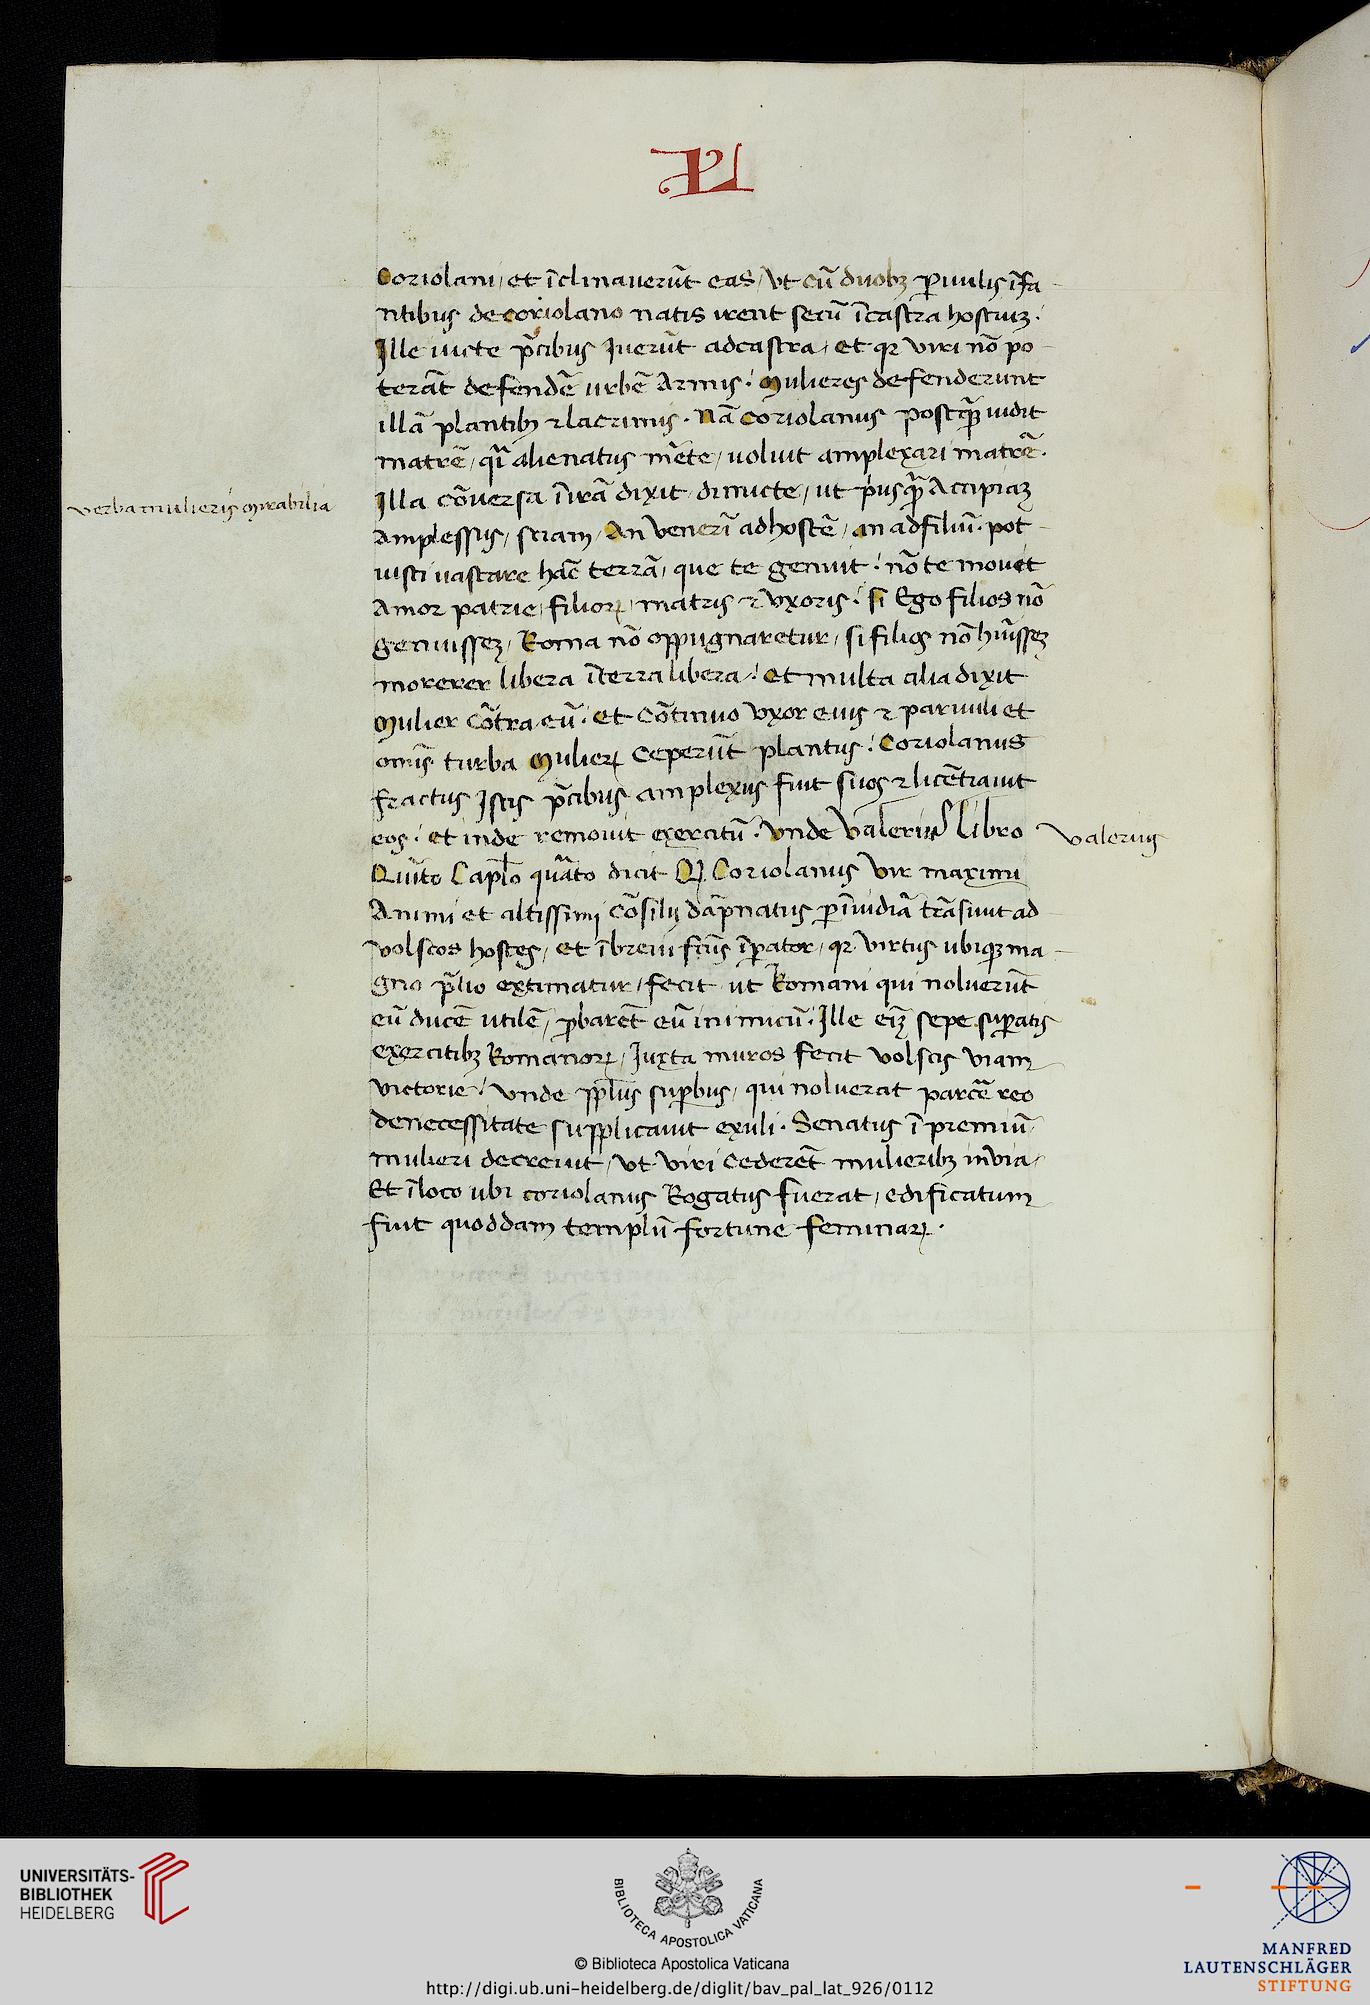 L
Coriolani / et īclinaverūt eas / vt cū duobꝫ ꝑvulis īfa
ntibus de coriolano natis irent secū ī castra hostiuꝫ ·
Ille victe p̄cibus Iverūt ad castra / et qr viri nō po
terāt defendē urbē Armis : Mulieres defenderunt
illā plantibꝫ ⁊ lacrimis · Nā Coriolanus postqꝫ̄ vidit
matrē / qī alienatus mēte / voluit amplexari matrē ·
Illa Cōversa ī irā dixit dimicte / ut pusqꝫ̄ Accipiaꝫ
Amplessus / sciam / An venerī ad hostē / an ad filiū · pot
uisti vastare hāc terrā / que te genuit : nō te movet
Amor patrie / filioꝝ / matris ⁊ vxoris : si Ego filios nō
genuisseꝫ / Roma nō oppugnaretur / si filios nō hūisseꝫ
morerer libera ī terra libera : et multa alia dixit
Mulier Cōtra eū : et Cōtinuo vxor eius ⁊ parvuli et
omīs turba Mulieꝝ Ceperūt plantus : Coriolanus
fractus Istis p̄cibus amplexus fuit suos ⁊ licētiauit
eos : et inde removit exercitū · Vnde Valerius libro
Quīto Capl̄o quāto dicit Ꝙ Coriolanus Vir maximi
Animi et altissimi Cōsilij dāpnatus ꝑ īvidiā trāsiuit ad
volscos hostes / et ī brevi fc̄us īꝑator / qr virtus ubiqꝫ ma
gno p̄lio extimatur / fecit ut Romani qui noluerūt
eū ducē utilē / ꝓbarēt eū inimicū · Ille eīꝫ sepe suꝑatis
exercitibꝫ Romanoꝝ / Iuxta muros fecit volscis viam
victorie : Vnde pp̄lus suꝑbus / qui noluerat parcē reo
de necessitate supplicavit exuli · Senatus ī premiū
mulieri decrevit / vt viri Cederēt mulieribꝫ in via /
Et ī loco ubi coriolanus Rogatus fuerat / edificatum
fuit quoddam templū fortune feminaꝝ ·
verba mulieris mirabilia
Valerius
UNIVERSITÄTS-
BIBLIOTHEK
HEIDELBERG
BIBLIOTECA APOSTOLICA VATICANA
© Biblioteca Apostolica Vaticana
http://digi.ub.uni-heidelberg.de/diglit/bav_pal_lat_926/0112
MANFRED
LAUTENSCHLÄGER
STIFTUNG